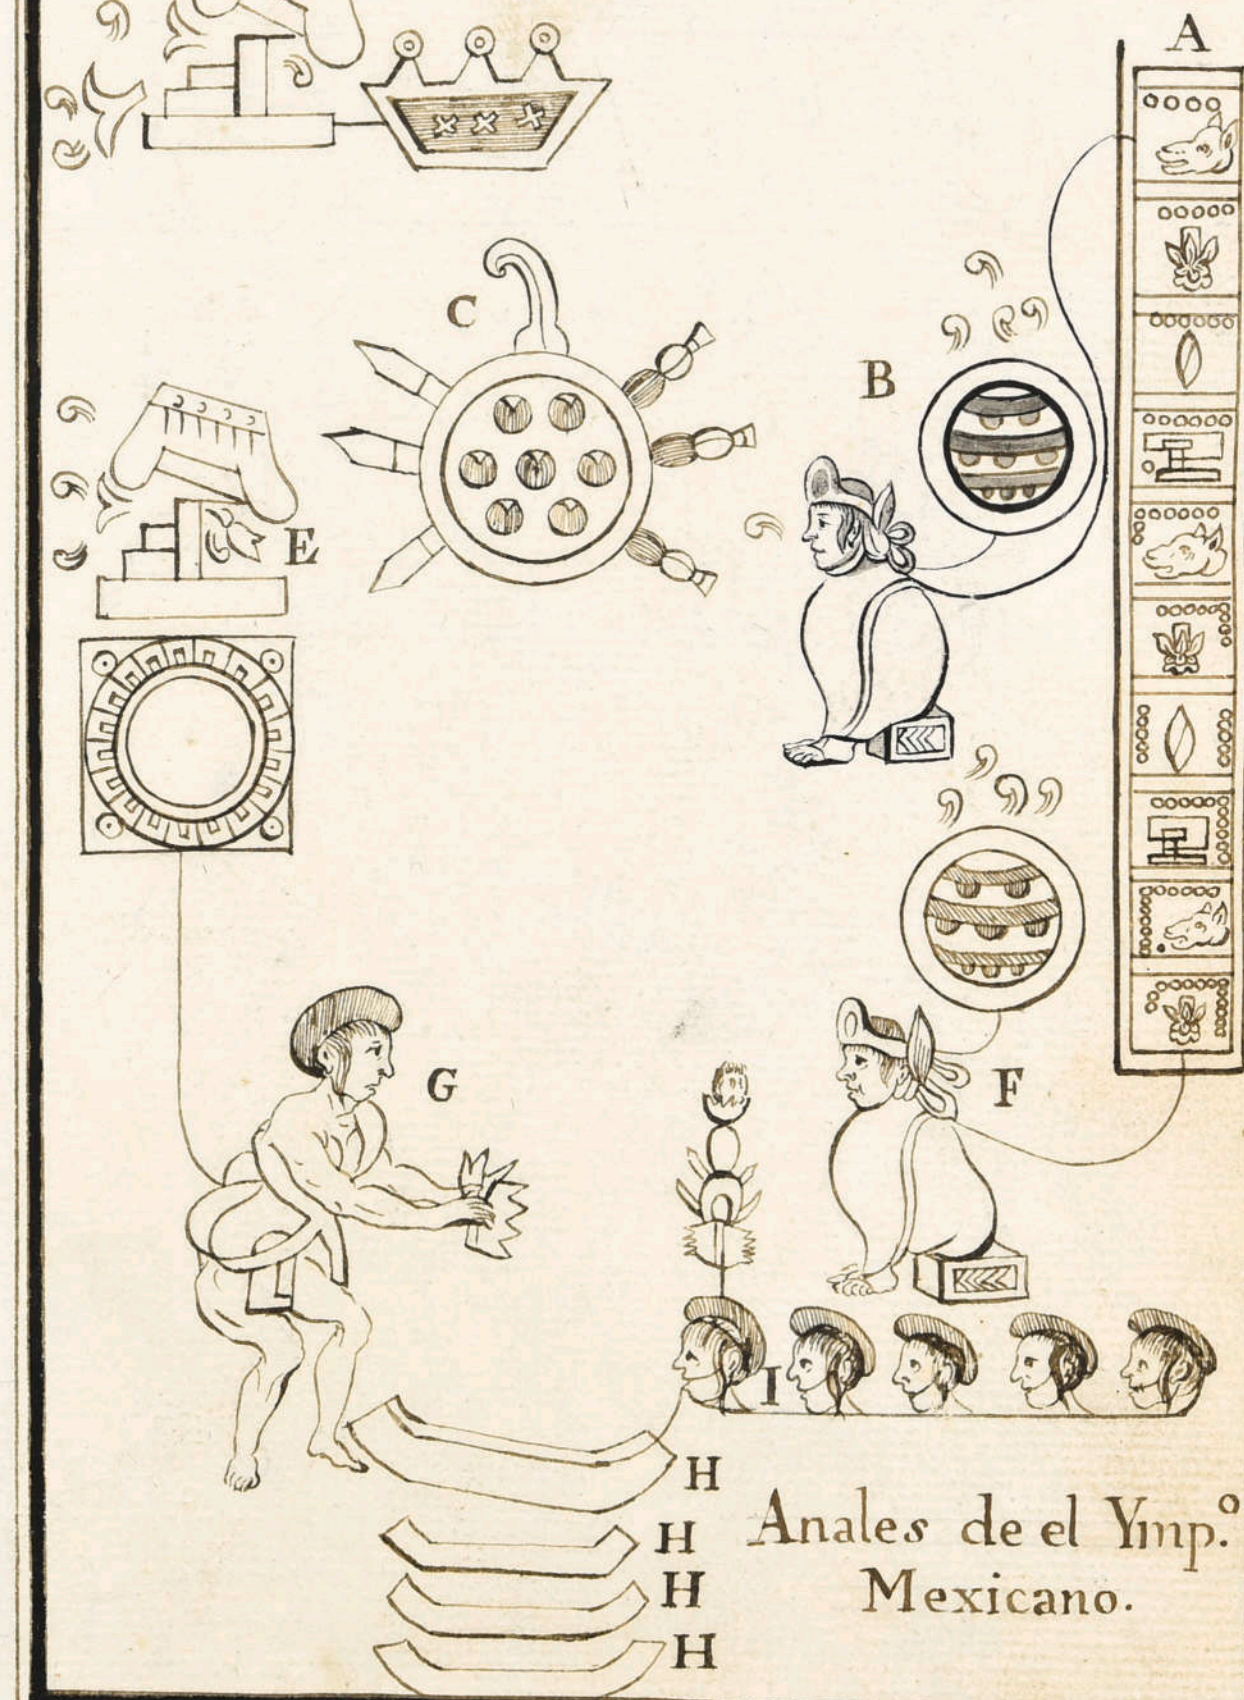 A
C
B
E
G
F
I
H
H
H
H
Anales de el Ymp.º
Mexicano.